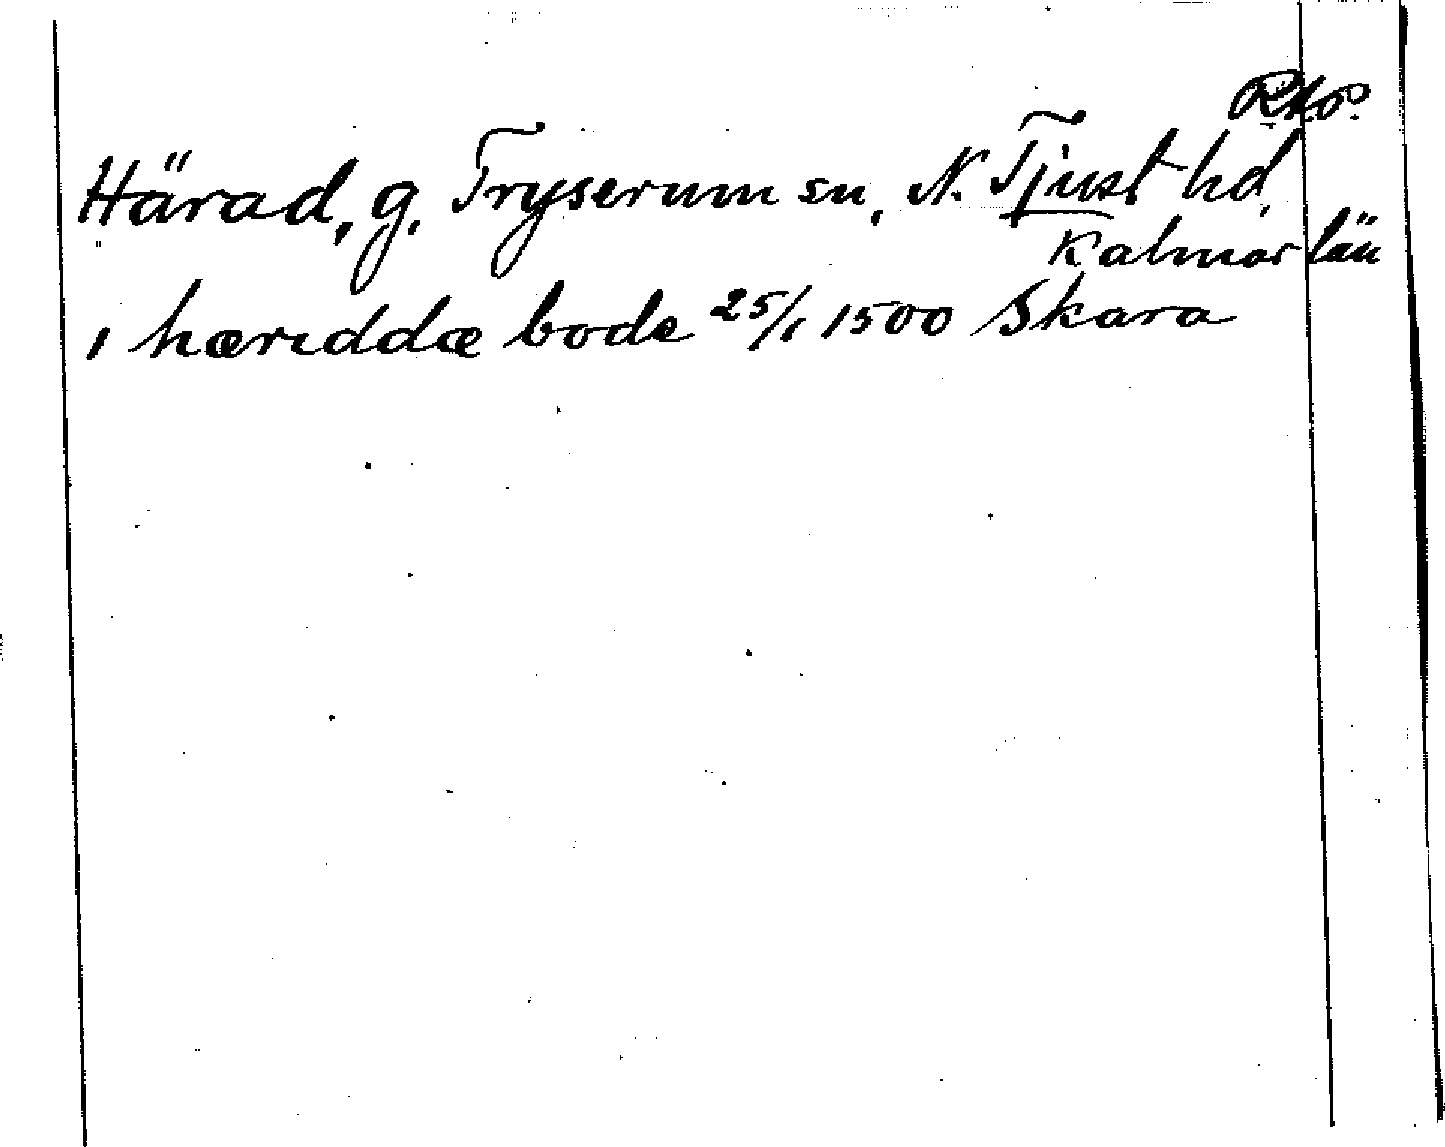 RAp.
Härad, g. Tryserum sn, N. Tjust hd,
Kalmar län
i hæriddæ bode 25/1 1500 Skara